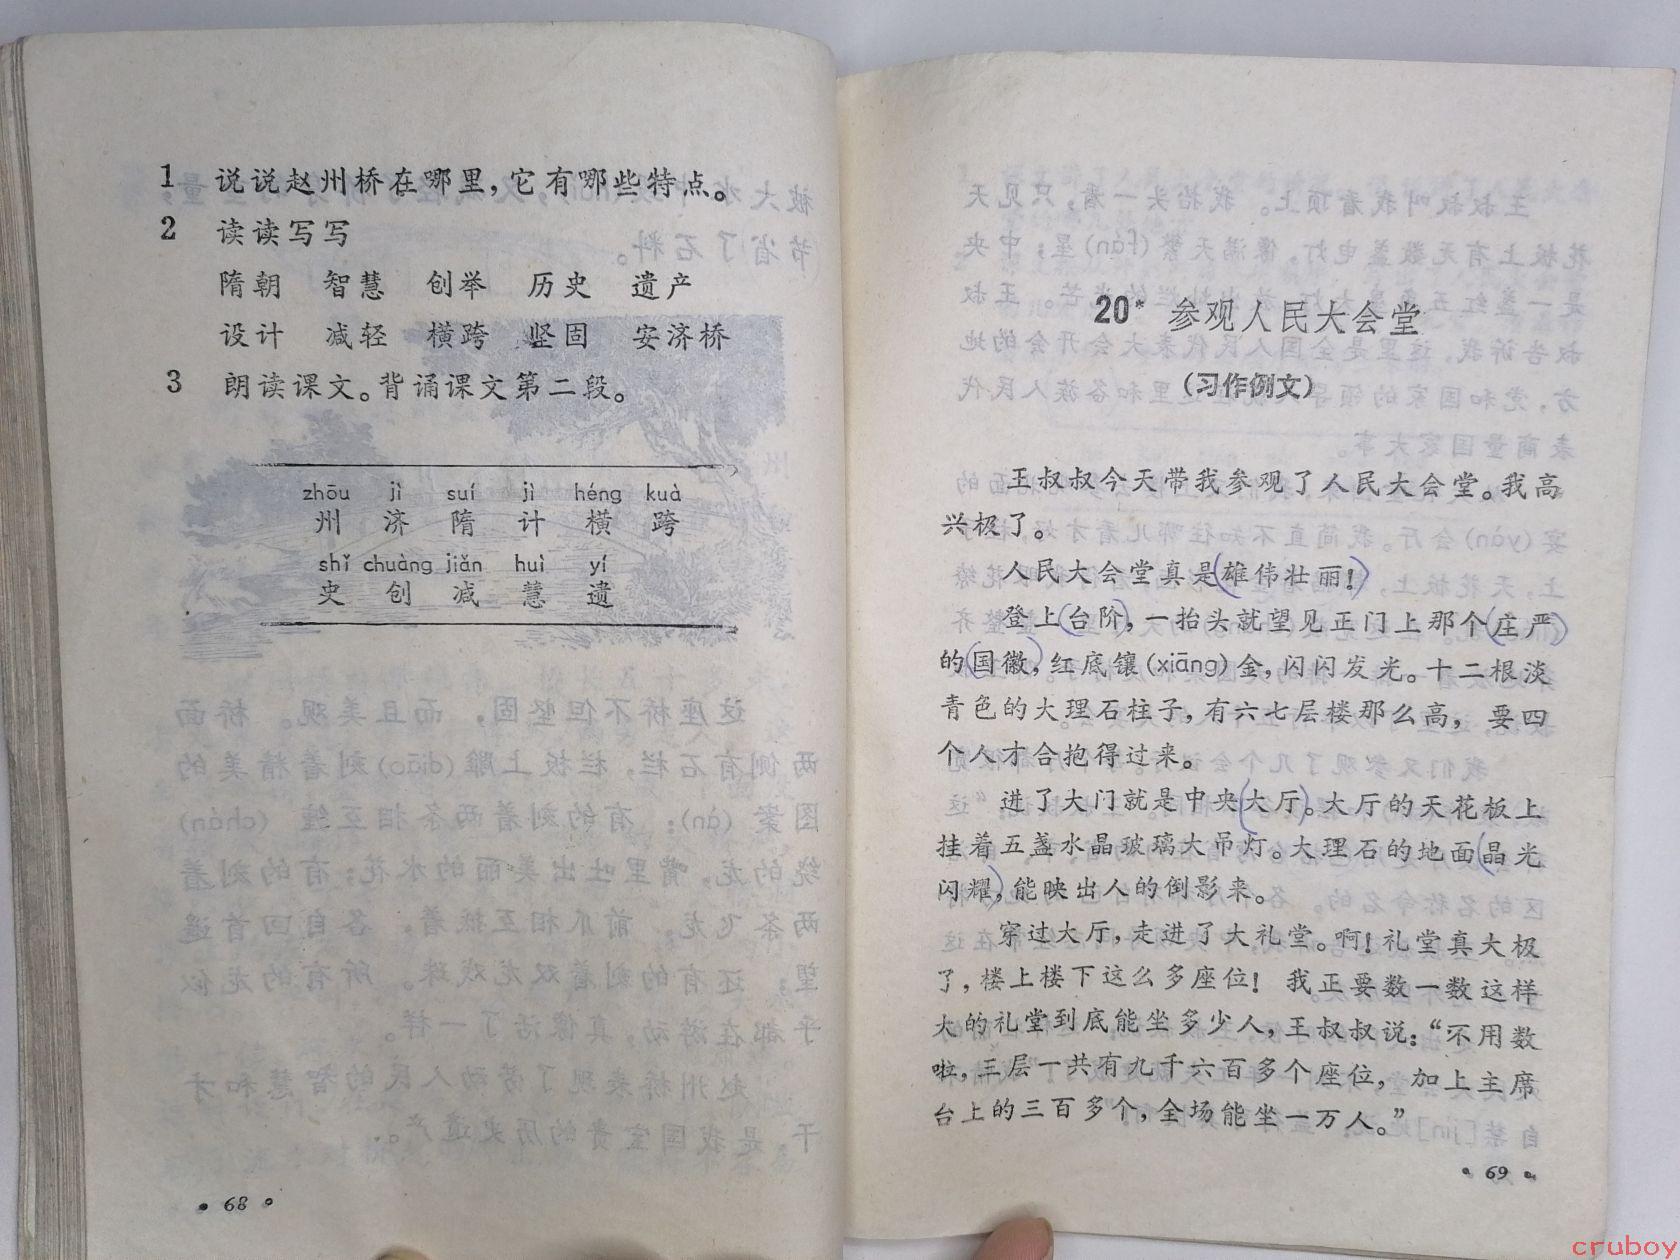 1 说说赵州桥在哪里，它有哪些特点。
2 读读写写
隋朝 智慧 创举 历史 遗产
设计 减轻 横跨 坚固 安济桥
3 朗读课文。背诵课文第二段。
zhōu jì suí jì héng kuà
州 济 隋 计 横 跨
shǐ chuàng jiǎn huì yí
史 创 减 慧 遗
• 68 •
20* 参观人民大会堂
（习作例文）
王叔叔今天带我参观了人民大会堂。我高
兴极了。
人民大会堂真是雄伟壮丽！
登上台阶，一抬头就望见正门上那个庄严
的国徽，红底镶(xiāng)金，闪闪发光。十二根淡
青色的大理石柱子，有六七层楼那么高，要四
个人才合抱得过来。
进了大门就是中央大厅。大厅的天花板上
挂着五盏水晶玻璃大吊灯。大理石的地面晶光
闪耀，能映出人的倒影来。
穿过大厅，走进了大礼堂。啊！礼堂真大极
了，楼上楼下这么多座位！我正要数一数这样
大的礼堂到底能坐多少人，王叔叔说：“不用数
啦，三层一共有九千六百多个座位，加上主席
台上的三百多个，全场能坐一万人。”
• 69 •
cruboy